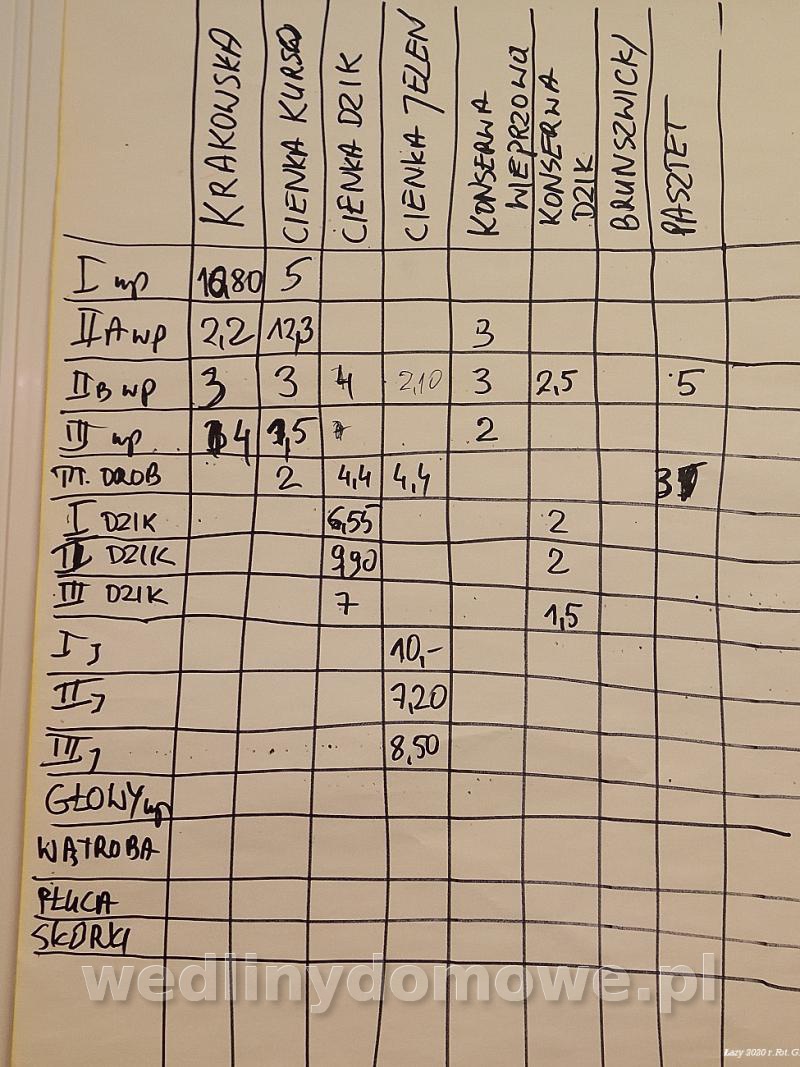 KRAKOWSKA CIENKA KURSO CIENKA DZIK CIENKA JELEŃ KONSERWA WIEPRZOWA KONSERWA DZIK BRUNSZWICK/ PASZTET
I wp 10,80 5
II A wp 2,2 12,3 3
II B wp 3 3 4 2,10 3 2,5 5
III wp 4 1,5 2
M. DROB 2 4,4 4,4 3
I DZIK 6,55 2
II DZIK 9,90 2
III DZIK 7 1,5
I J 10,-
II J 7,20
III J 8,50
GŁOWY wp
WĄTROBA
PŁUCA
SKÓRKI
wedlinydomowe.pl
Łazy 2020 r. Fot. G.